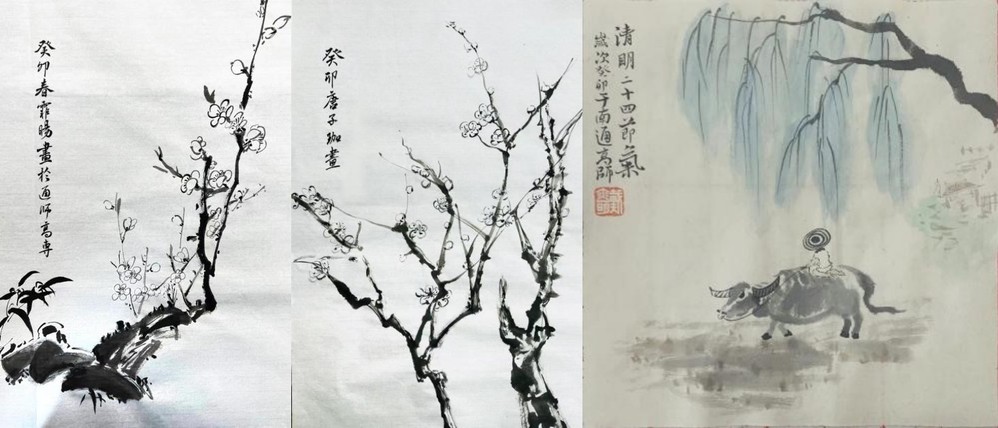 癸卯春霏暘畫於通師高专
癸卯唐子珈畫
清明二十四節氣
歲次癸卯于南通高師